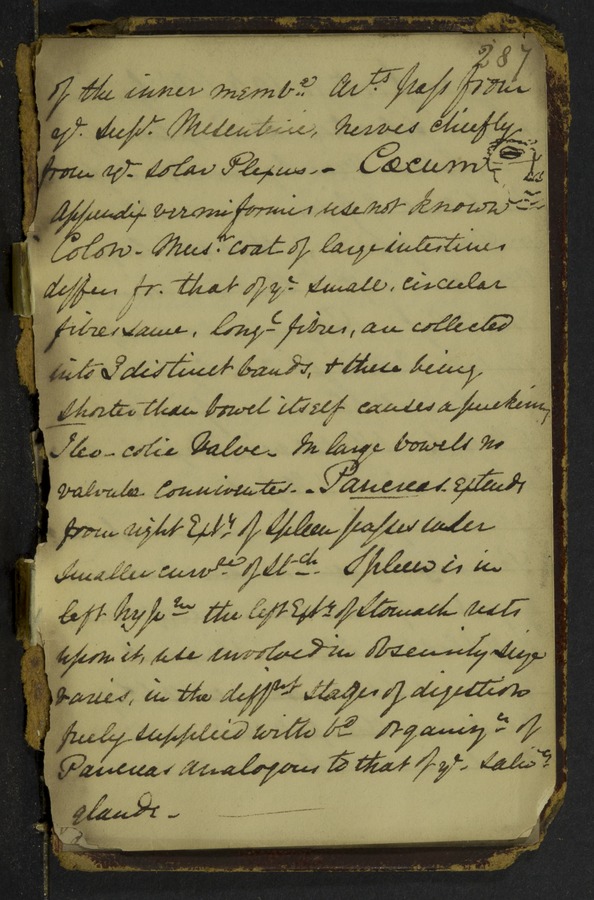 287
of the inner memb:e Arts. pass from
ye. Supr. Mesenteric, nerves chiefly
from ye. solar Plexus. - Cæcum
Appendix vermiformis use not known
Colon - Mus.r coat of large intestines
differs fr. that of ye. small, circular
fibres same, longl. fibres, are collected
into 3 distinct bands, & these being
shorter than bowel itself causes a puckering
Ileo-colic Valve. In large bowels no
valvulæ conniventes. - Pancreas. extends
from right Exty of Spleen passes under
smaller curvre of St-ch. Spleen is in
left Hypm the left Exty of Stomach rests
upon it, use involved in obscurity size
varies, in the diffrnt stages of digestion
freely supplied with bd organizn of
Pancreas analogous to that of ye. saliv.y
glands -